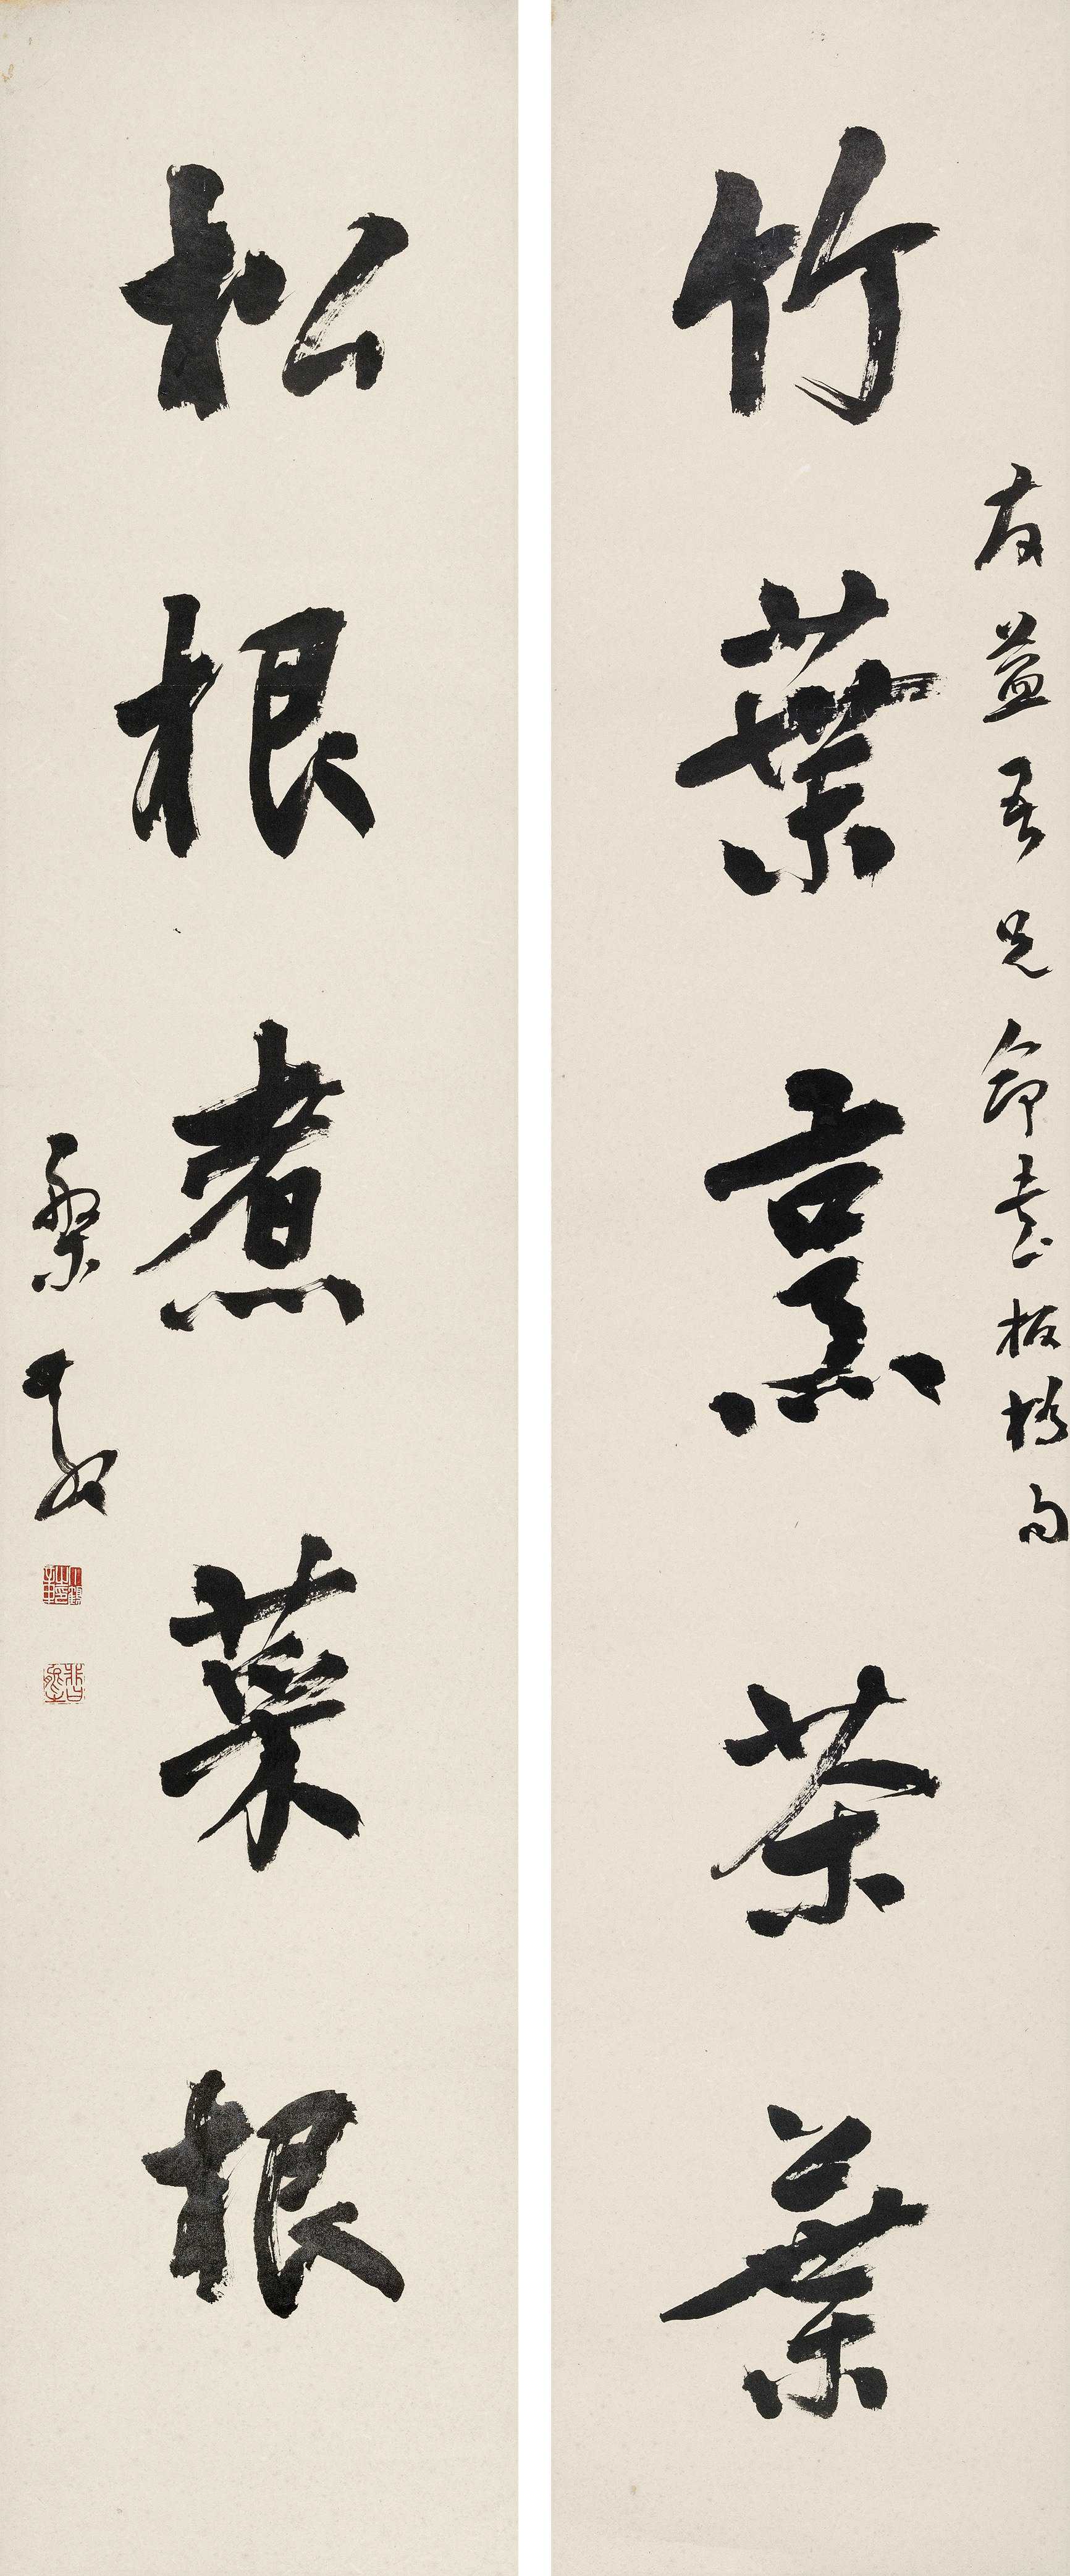 竹葉烹茶葉
友益吾兄命書板橋句
松根煮菜根
槃